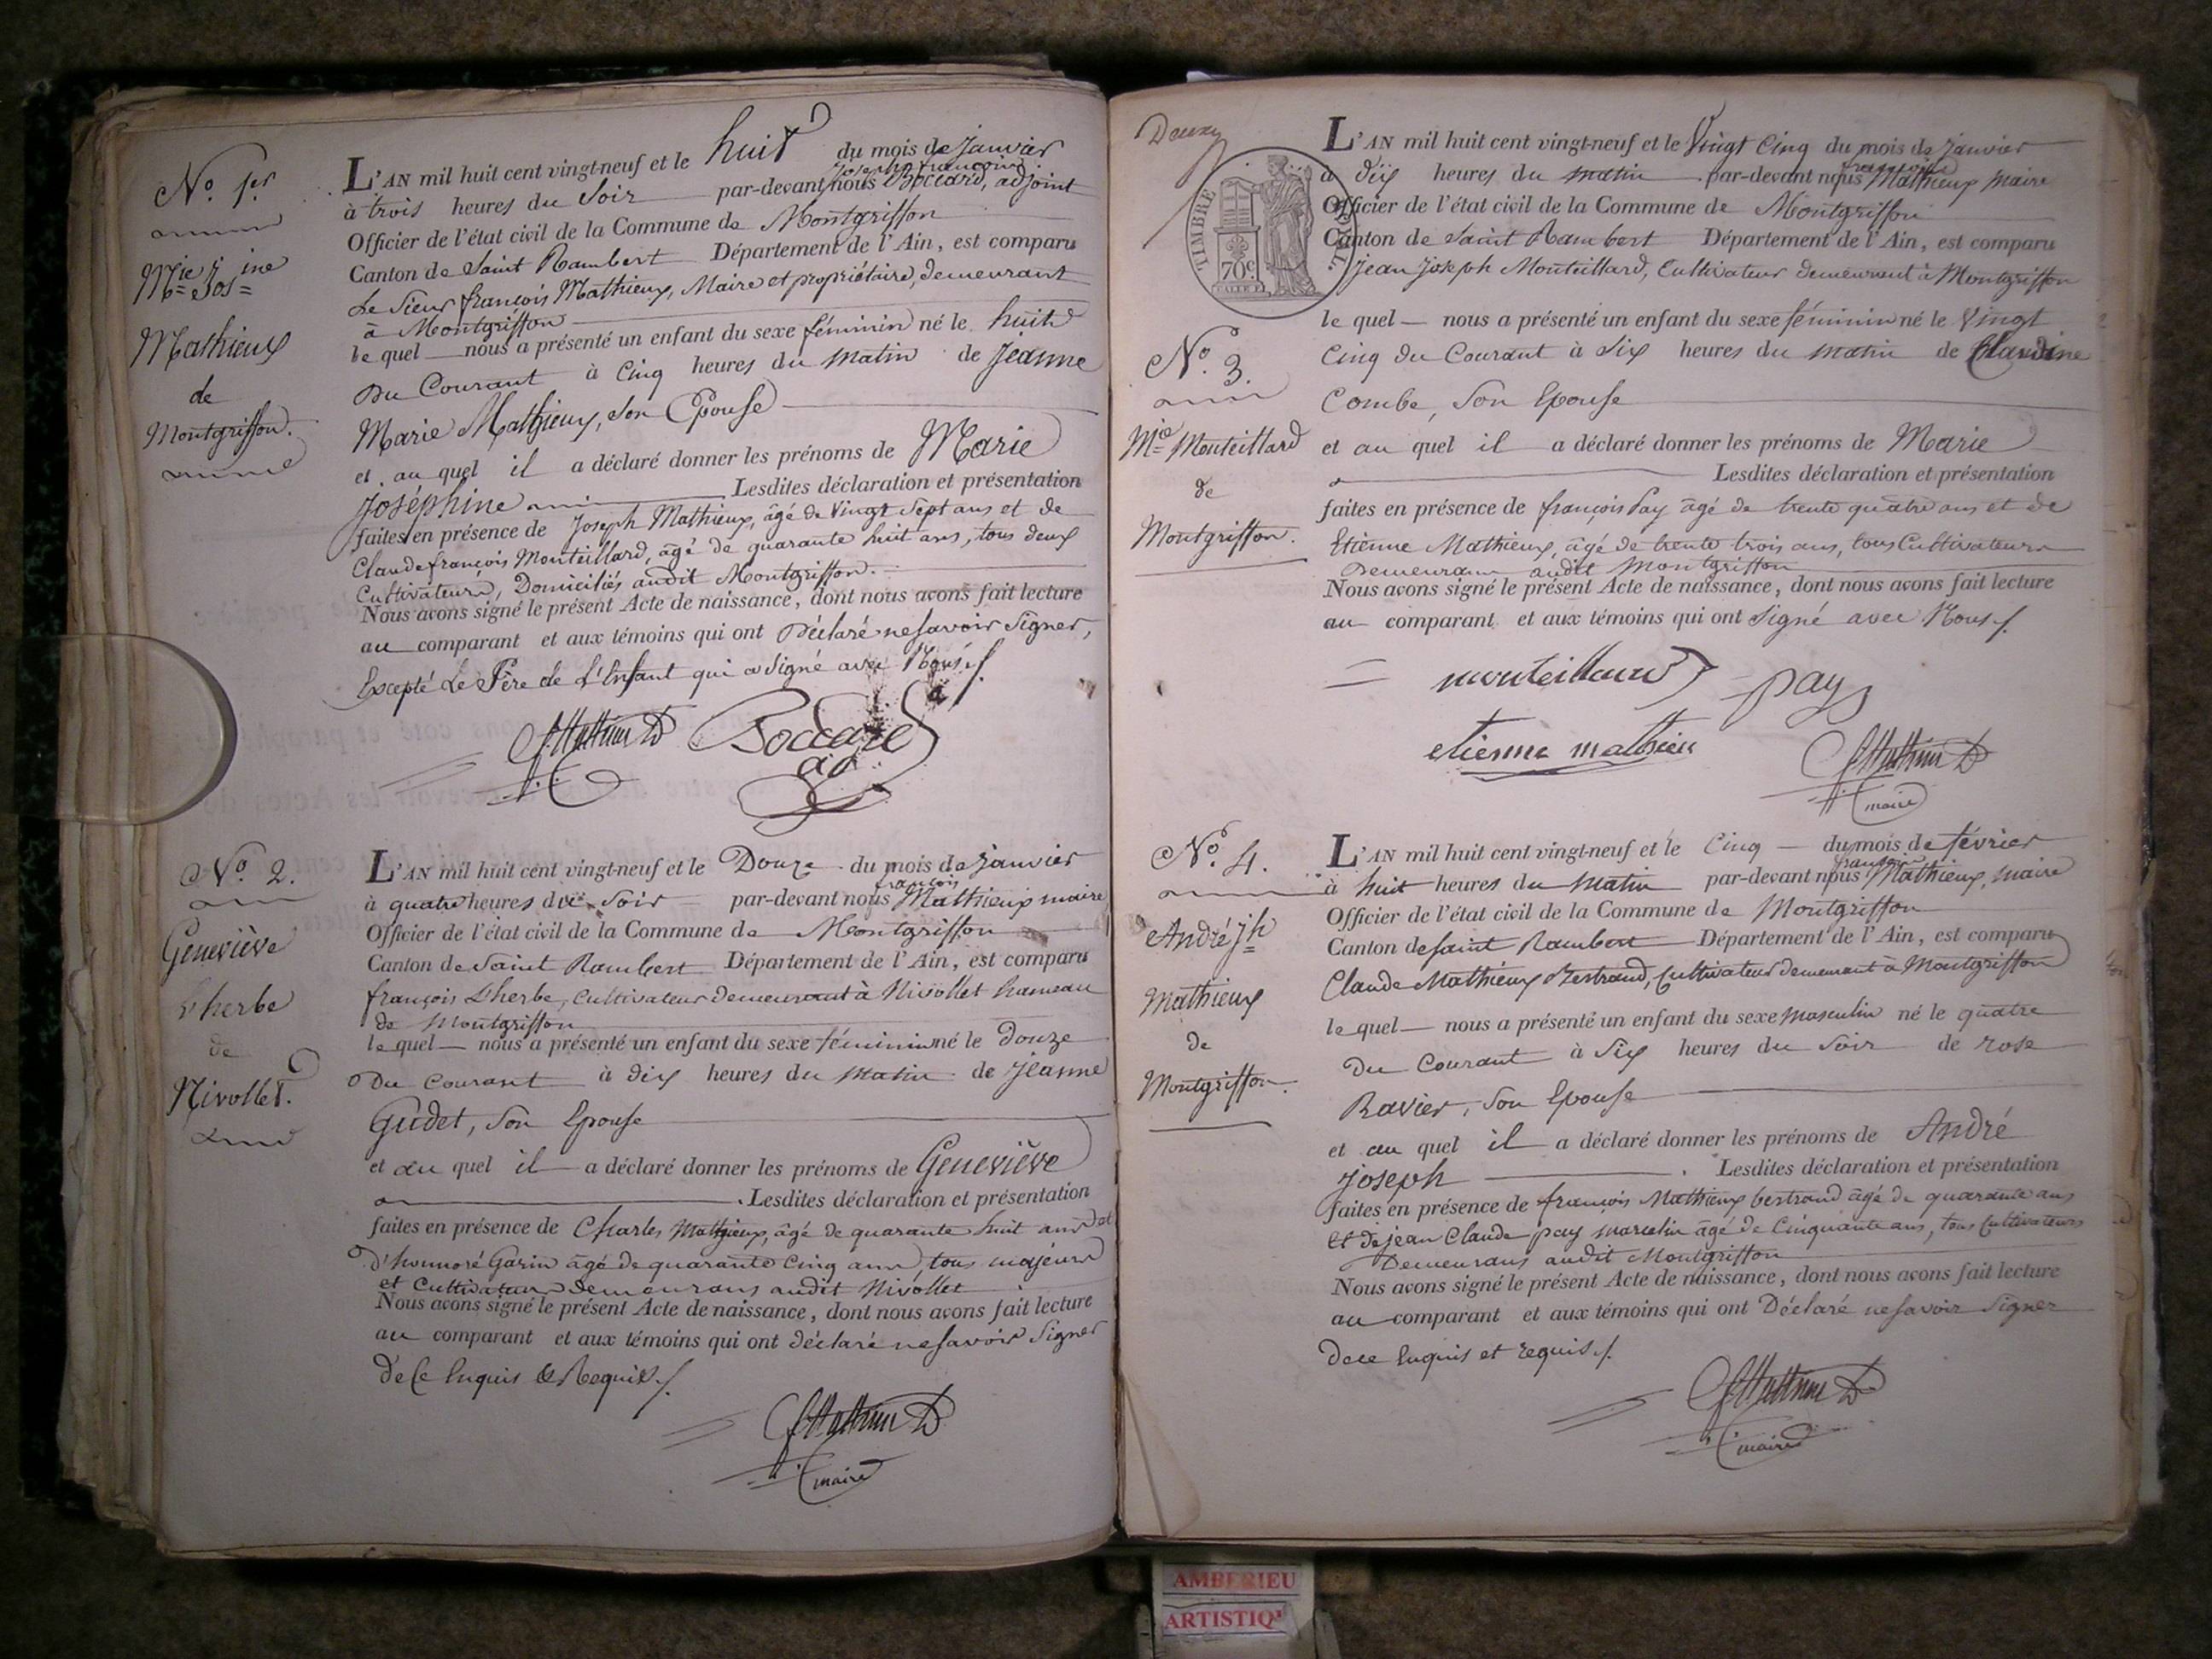 No. 1er
Mie Josine
Mathieux
de
Montgriffon.
L'AN mil huit cent vingt-neuf et le huit du mois de janvier
à trois heures du Soir par-devant nous Joseph françois Boccard, adjoint
Officier de l'état civil de la Commune de Montgriffon
Canton de Saint Rambert Département de l'Ain, est comparu
Le Sieur françois Mathieux, Maire et propriétaire, demeurant
à Montgriffon
le quel nous a présenté un enfant du sexe féminin né le huit
Du Courant à Cinq heures du matin de Jeanne
Marie Mathieux, Son Epouse
et au quel il a déclaré donner les prénoms de Marie
Joséphine Lesdites déclaration et présentation
faites en présence de Joseph Mathieux, âgé de Vingt Sept ans et de
Claude françois Monteillard, âgé de quarante huit ans, tous deux
Cultivateurs, Domiciliés audit Montgriffon.
Nous avons signé le présent Acte de naissance, dont nous avons fait lecture
au comparant et aux témoins qui ont Déclaré ne Savoir Signer,
Excepté Le Père de L'Enfant qui a Signé avec Nous ./.
Boccard
ad.
No. 2.
Geneviève
Lherbe
de
Nivollet.
L'AN mil huit cent vingt-neuf et le Douze du mois de janvier
à quatre heures du Soir par-devant nous françois Mathieux maire
Officier de l'état civil de la Commune de Montgriffon
Canton de Saint Rambert Département de l'Ain, est comparu
françois Lherbe, Cultivateur demeurant à Nivollet hameau
de Montgriffon
le quel nous a présenté un enfant du sexe féminin né le Douze
Du Courant à dix heures du Matin de Jeanne
Gudet, Son Epouse
et au quel il a déclaré donner les prénoms de Geneviève
Lesdites déclaration et présentation
faites en présence de Charles Mathieux, âgé de quarante huit ans et
D'honnoré Garin âgé de quarante Cinq ans, tous majeurs
et Cultivateurs Demeurans audit Nivollet
Nous avons signé le présent Acte de naissance, dont nous avons fait lecture
au comparant et aux témoins qui ont déclaré ne Savoir Signer
de Ce Enquis & Requis ./.
maire
Deux
TIMBRE ROYAL
70c
No. 3.
Mie Monteillard
de
Montgriffon.
L'AN mil huit cent vingt-neuf et le Vingt Cinq du mois de Janvier
à dix heures du matin par-devant nous françois Mathieux maire
Officier de l'état civil de la Commune de Montgriffon
Canton de Saint Rambert Département de l'Ain, est comparu
Jean Joseph Monteillard, Cultivateur demeurant à Montgriffon
le quel nous a présenté un enfant du sexe féminin né le Vingt
Cinq du Courant à Six heures du matin de Claudine
Combe, Son Epouse
et au quel il a déclaré donner les prénoms de Marie
Lesdites déclaration et présentation
faites en présence de françois Pay âgé de trente quatre ans et de
Etienne Mathieux, âgé de trente trois ans, tous Cultivateurs
Demeurans audit Montgriffon
Nous avons signé le présent Acte de naissance, dont nous avons fait lecture
au comparant et aux témoins qui ont Signé avec Nous ./.
monteillard pay
etienne mathieu
maire
No. 4.
André Jh
Mathieux
de
Montgriffon.
L'AN mil huit cent vingt-neuf et le Cinq du mois de février
à huit heures du Matin par-devant nous françois Mathieux, maire
Officier de l'état civil de la Commune de Montgriffon
Canton de Saint Rambert Département de l'Ain, est comparu
Claude Mathieux Bertrand, Cultivateur demeurant à Montgriffon
le quel nous a présenté un enfant du sexe masculin né le quatre
Du Courant à Six heures du Soir de rose
Ravier, Son Epouse
et au quel il a déclaré donner les prénoms de André
Joseph Lesdites déclaration et présentation
faites en présence de françois Mathieux bertrand âgé de quarante ans
et de jean Claude pay marcelin âgé de Cinquante ans, tous Cultivateurs
Demeurans audit Montgriffon
Nous avons signé le présent Acte de naissance, dont nous avons fait lecture
au comparant et aux témoins qui ont Déclaré ne Savoir Signer
de ce Enquis et requis ./.
maire
AMBERIEU
ARTISTIQ